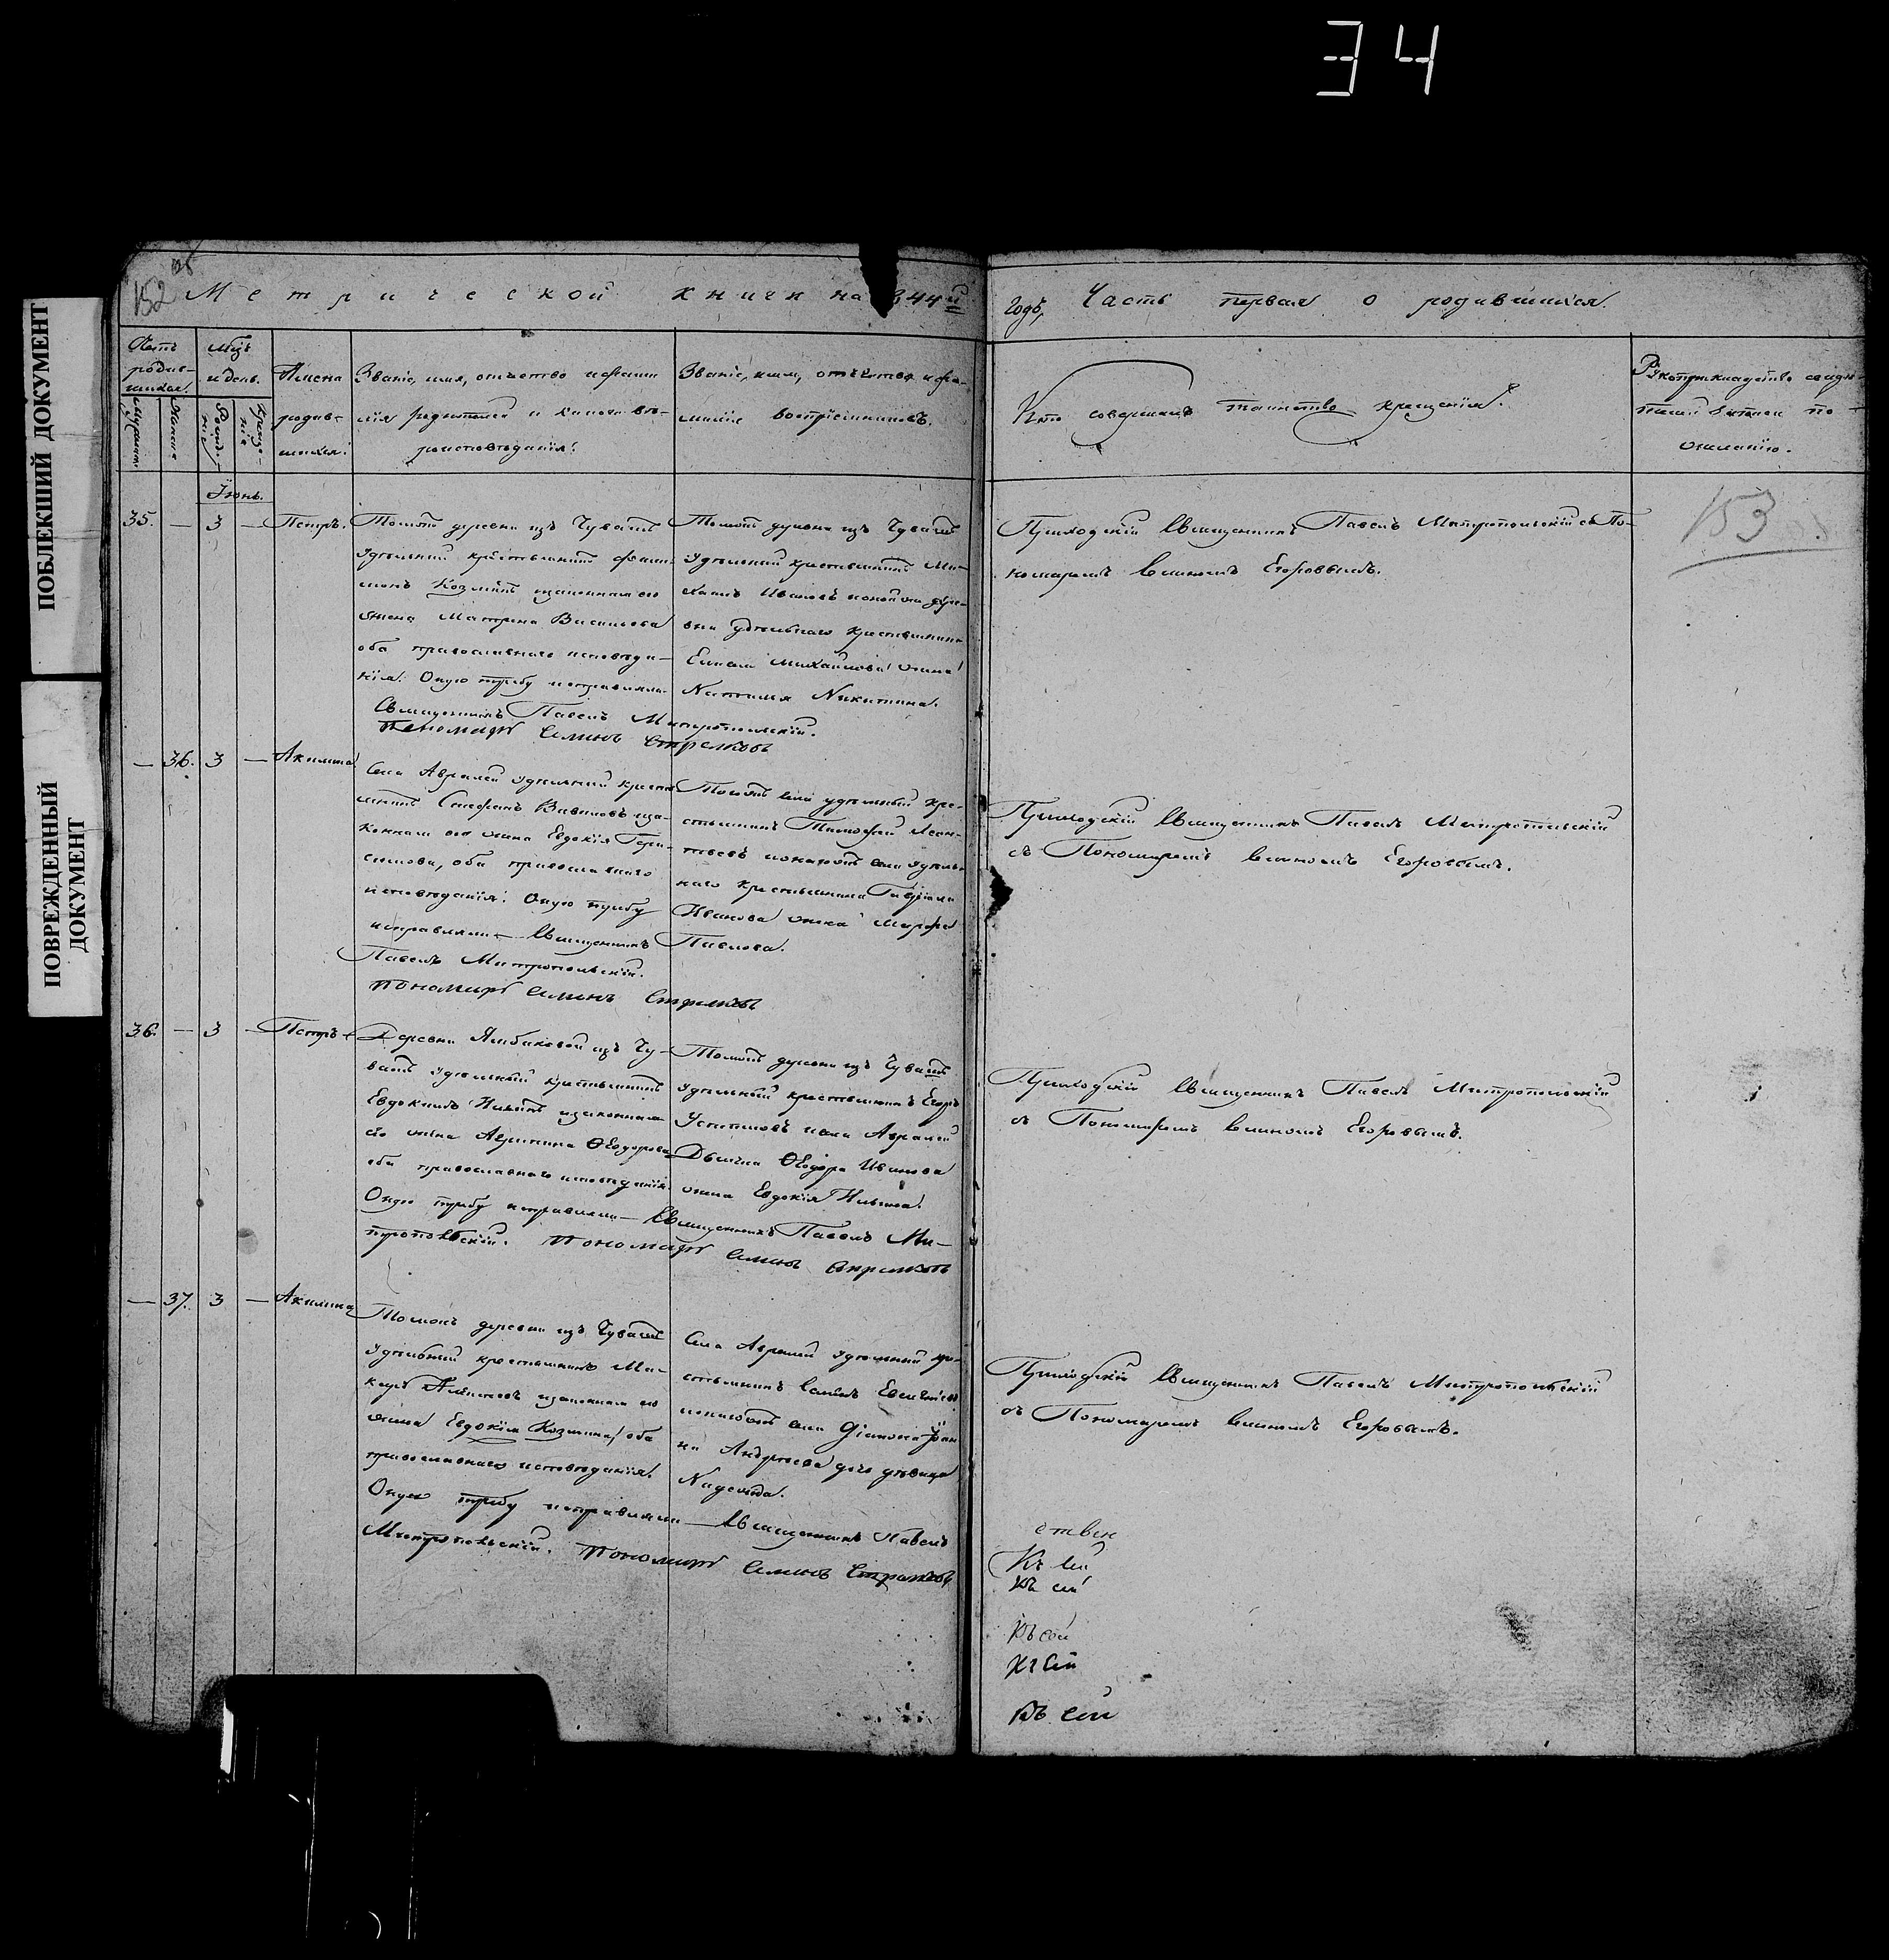 34
ПОБЛЕКШИЙ ДОКУМЕНТ
ПОВРЕЖДЕННЫЙ
ДОКУМЕНТ
152
Метрической книги на 844й
годъ, Часть первая о родившихся.
Имена
родив-
шихся.
Званіе, имя, отчество и фами
лія родителей и какого вѣ-
роисповѣданія.
Званіе, имя, отчество и фа-
миліи воспріемниковъ.
Кто совершалъ таинство крещенія.
Рукоприкладство свидѣ-
телей записи по
желанію.
153
Іюнь.
35. — 3 — Петръ.
Тойже деревни изъ Чувашъ
удѣльный крестьянинъ Фили
монъ Козминъ и законная его
жена Матрена Васильева
оба православнаго исповѣда-
нія. Оную требу исправляли
Священникъ Павелъ Митропольскій.
Пономарь Семенъ Стрелковъ
Тойже деревни изъ Чувашъ
удѣльный крестьянинъ Ми-
хаилъ Ивановъ и оной же дере-
вни удѣльнаго крестьянина
Михайлова жена
Наталья Никитина.
Приходскій Священникъ Павелъ Митропольскій съ По-
номаремъ Семеномъ Егоровымъ.
— 36. 3 — Акилина
Села Авралей удѣльный кресть
янинъ Стефанъ Вавиловъ и за-
конная его жена Евдокія Гера-
симова, оба православнаго
исповѣданія. Оную требу
исправляли — Священникъ
Павелъ Митропольскій.
Пономарь Семенъ Стрелковъ
Тогожъ села удѣльный кре-
стьянинъ Тимофей Леон-
тьевъ и онагожъ села удѣль-
наго крестьянина Гаврилы
Иванова жена Марфа
Павлова.
Приходскій Священникъ Павелъ Митропольскій
съ Пономаремъ Семеномъ Егоровымъ.
36. — 3 — Петръ
Деревни Ямбиковой изъ Чу-
вашъ удѣльный крестьянинъ
Евдокимъ Ильинъ и законная
его жена Агрипина Ѳеодорова
оба православнаго исповѣданія.
Оную требу исправляли — Священникъ Павелъ Ми-
тропольскій. Пономарь Семенъ Стрелковъ
Тойже деревни изъ Чувашъ
удѣльный крестьянинъ Егоръ
Устимовъ и села Авралей
Дьячка Ѳеодора Иванова
жена Евдокія Ильина.
Приходскій Священникъ Павелъ Митропольскій
съ Пономаремъ Семеномъ Егоровымъ.
— 37. 3 — Акилина
Тойже деревни изъ Чувашъ
удѣльный крестьянинъ Ми-
и законная его
жена Евдокія Козмина, оба
православнаго исповѣданія.
Оную требу исправляли — Священникъ Павелъ
Митропольскій. Пономарь Семенъ Стрелковъ
Села Авралей удѣльный кре-
стьянинъ
и онагожъ села Діакона Іоан
на Андреева дочь дѣвица
Надежда.
Приходскій Священникъ Павелъ Митропольскій
съ Пономаремъ Семеномъ Егоровымъ.
ствен
Къ сей
Къ сей
Къ сей
Къ сей
Къ сей